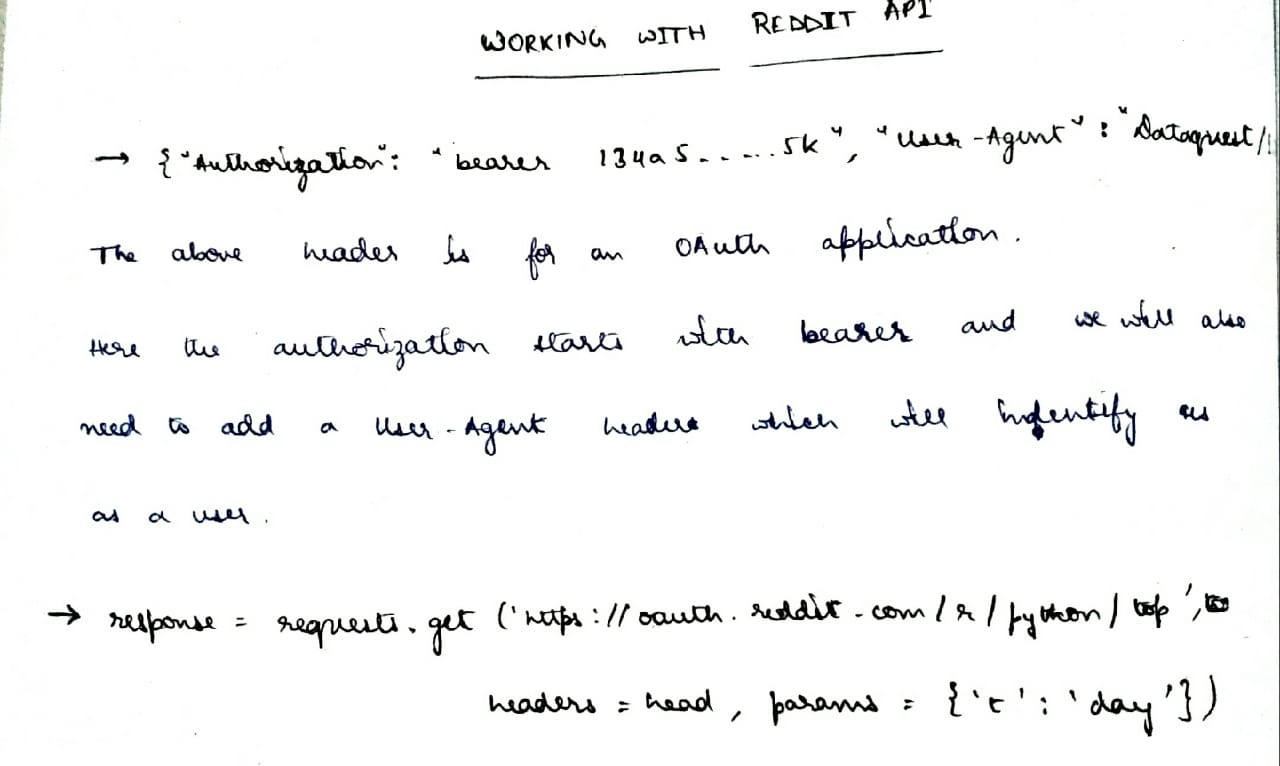 WORKING WITH REDDIT API
→ {"Authorization": "bearer 134a5......5k", "User-Agent": "Dataquest/
The above header is for an OAuth application.
Here the authorization starts with bearer and we will also
need to add a User-Agent headers which will indentify us
as a user.
→ response = requests.get('https://oauth.reddit.com/r/python/top',
headers = head, params = {'t': 'day'})